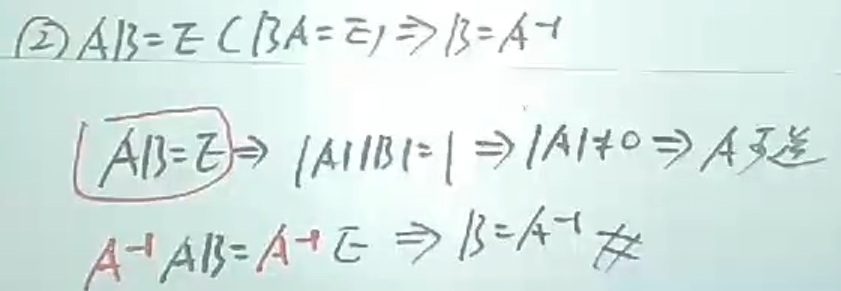 ② AB=E (BA=E) ⇒ B=A⁻¹
AB=E ⇒ |A||B|=1 ⇒ |A|≠0 ⇒ A可逆
A⁻¹AB=A⁻¹E ⇒ B=A⁻¹ #